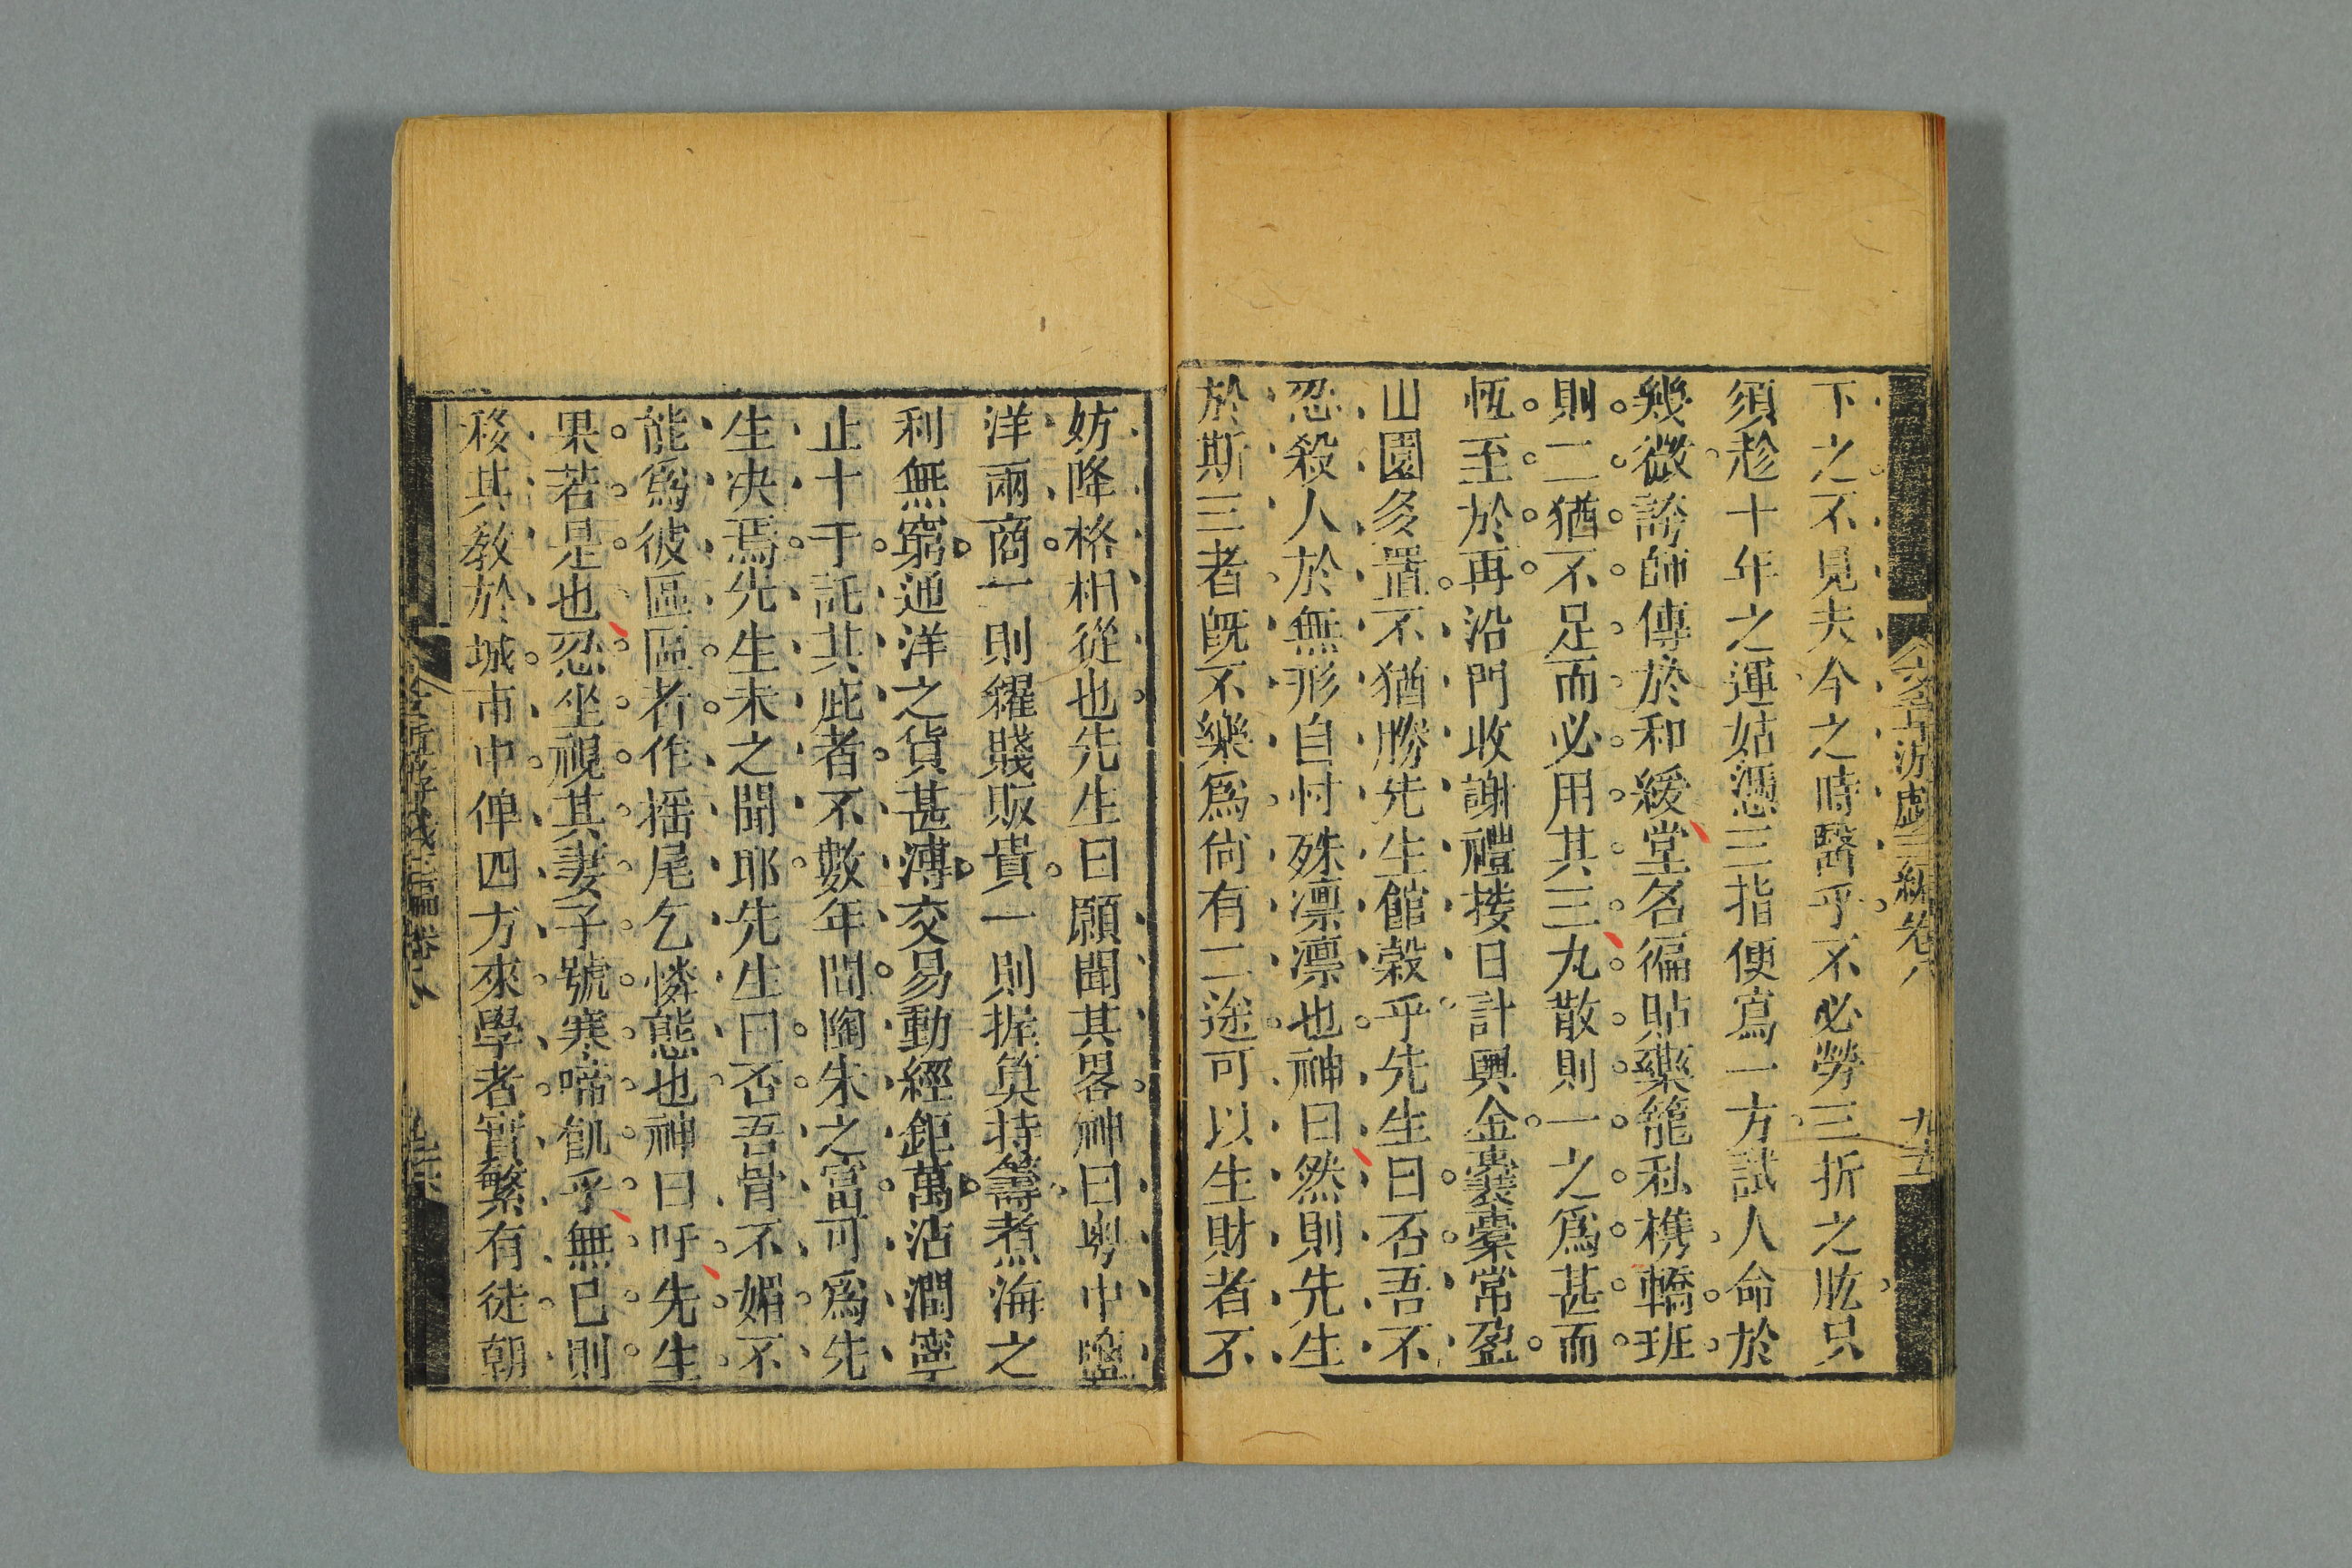 下之不見夫今之時醫乎不必勞三折之肱只
須趁十年之運姑憑三指便寫一方試人命於
幾微誇師傳於和緩堂名徧貼藥籠私携轎班
則二猶不足而必用其三丸散則一之爲甚而
恆至於再沿門收謝禮接日計興金囊橐常盈
山園多置不猶勝先生館穀乎先生曰否吾不
忍殺人於無形自忖殊凛凛也神曰然則先生
於斯三者旣不樂爲尙有二途可以生財者不
妨降格相從也先生曰願聞其畧神曰粤中鹽
洋兩商一則糴賤販貴一則握筭持籌煮海之
利無窮通洋之貨甚溥交易動經鉅萬沾潤寧
止十千託其庇者不數年間陶朱之富可爲先
生决焉先生未之聞耶先生曰否吾骨不媚不
能爲彼區區者作揺尾乞憐態也神曰吁先生
果若是也忍坐視其妻子號寒啼飢乎無已則
移其敎於城市中俾四方來學者實繁有徒朝